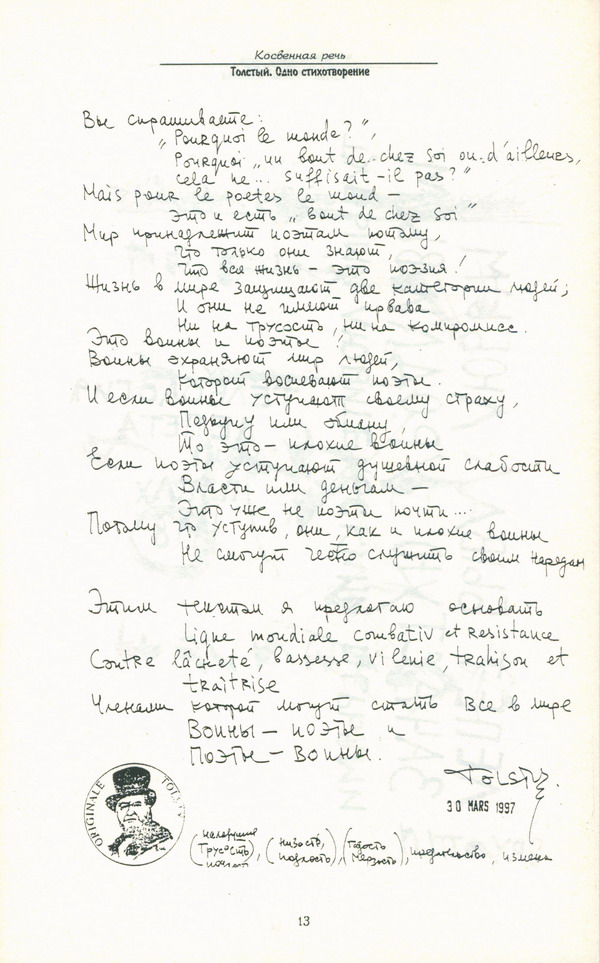 Косвенная речь
Толстый. Одно стихотворение
Вы спрашиваете:
„Pourquoi le monde?",
Pourquoi „un bout de chez soi ou d'ailleurs,
cela ne... suffisait-il pas?"
Mais pour le poetes le mond —
Это и есть „bout de chez soi"
Мир принадлежит поэтам потому,
Что только они знают,
Что вся жизнь — это поэзия!
Жизнь в мире защищают две категории людей;
И они не имеют права
Ни на трусость, ни на компромисс.
Это воины и поэты!
Воины охраняют мир людей,
Который воспевают поэты.
И если воины уступают своему страху,
Подкупу или обману,
То это — плохие воины
Если поэты уступают душевной слабости
Власти или деньгам —
Это уже не поэты почти...
Потому что уступив, они, как и плохие воины
Не смогут честно служить своим народам
Этим текстом я предлагаю основать
Ligue mondiale combativ et Resistance
Contre lâcheté, bassesse, vilenie, trahison et
traîtrise
Членами которой могут стать все в мире
Воины — поэты и
Поэты — Воины.
TOLSTY.
30 MARS 1997
ORIGINALE TOLSTY
(Трусость), (низость, подлость), (гадость мерзость), предательство, измена
13